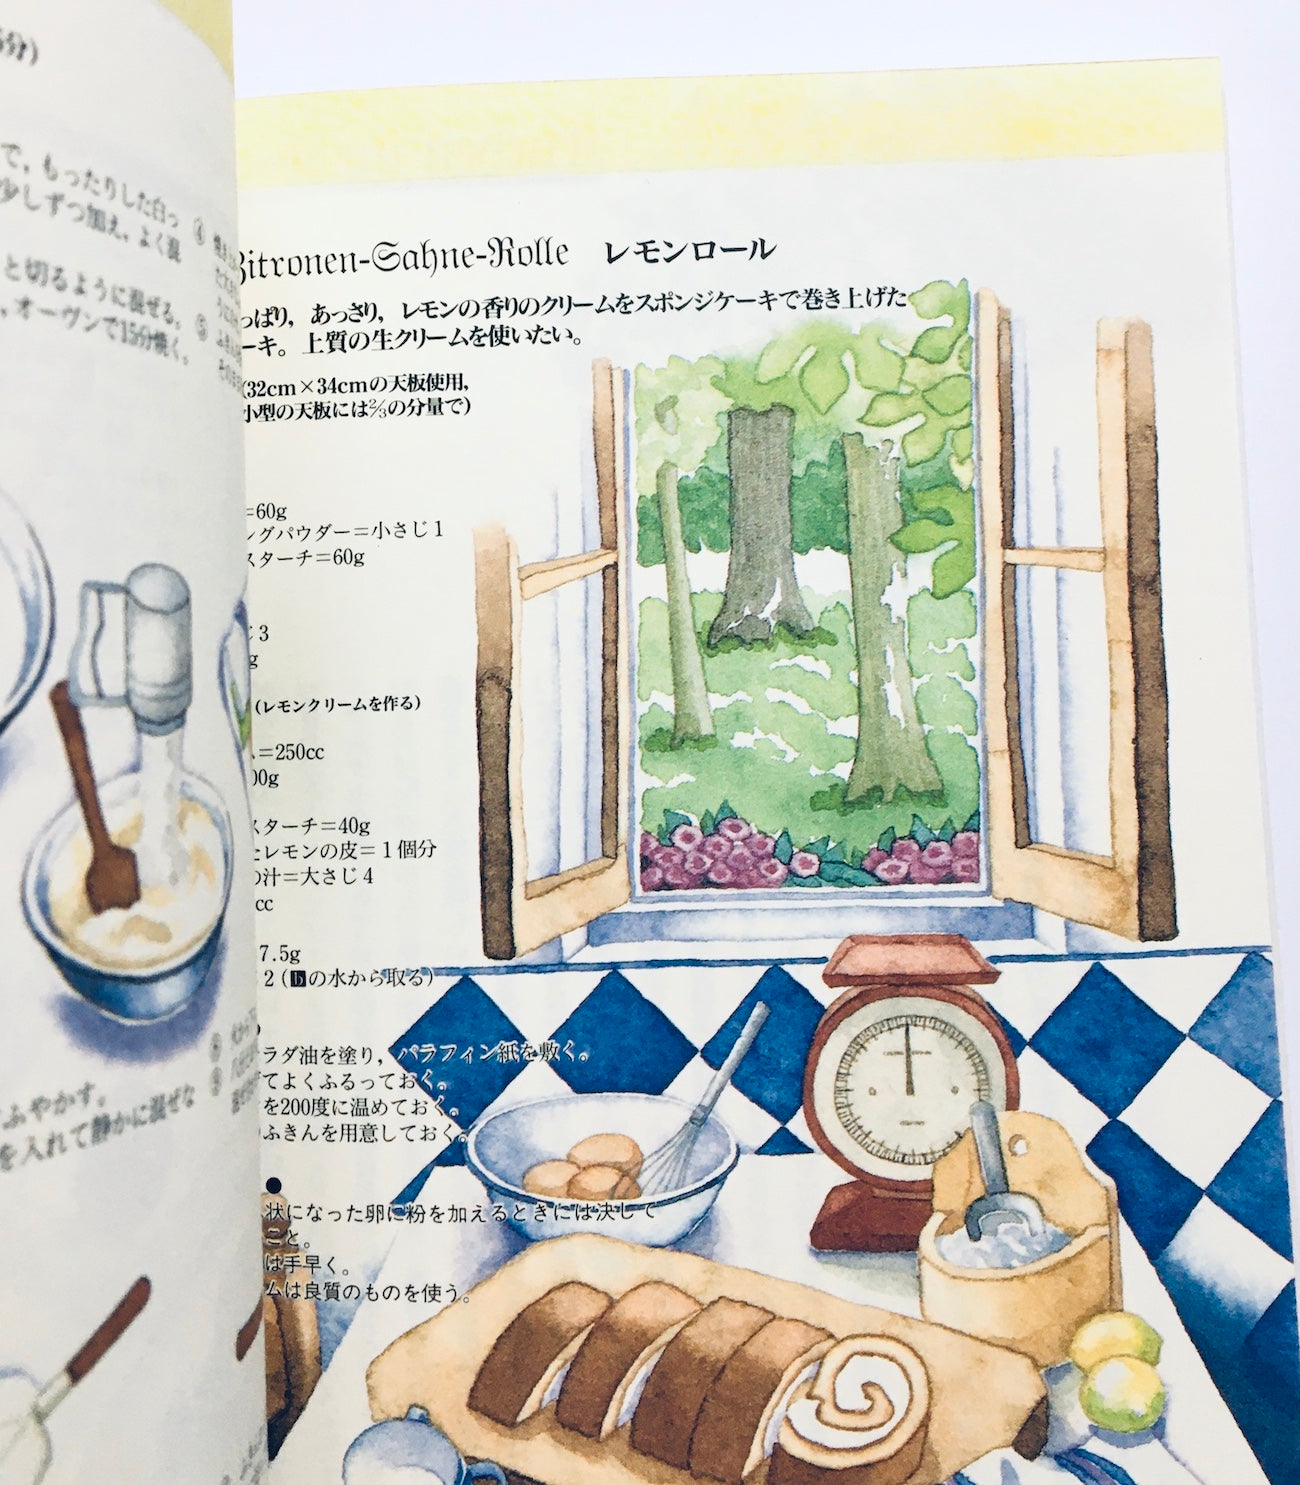 分)
で,もったりした白っ
少しずつ加え,よく混
と切るように混ぜる。
,オーヴンで15分焼く。
ふやかす。
を入れて静かに混ぜな
④
⑤
Zitronen-Sahne-Rolle レモンロール
っぱり,あっさり,レモンの香りのクリームをスポンジケーキで巻き上げた
ーキ。上質の生クリームを使いたい。
(32cm×34cmの天板使用,
小型の天板には2/3の分量で)
=60g
ングパウダー=小さじ1
スターチ=60g
3
g
(レモンクリームを作る)
=250cc
00g
スターチ=40g
たレモンの皮=1個分
の汁=大さじ4
cc
7.5g
2(bの水から取る)
ラダ油を塗り,パラフィン紙を敷く。
てよくふるっておく。
を200度に温めておく。
ふきんを用意しておく。
●
状になった卵に粉を加えるときには決して
こと。
は手早く。
ムは良質のものを使う。